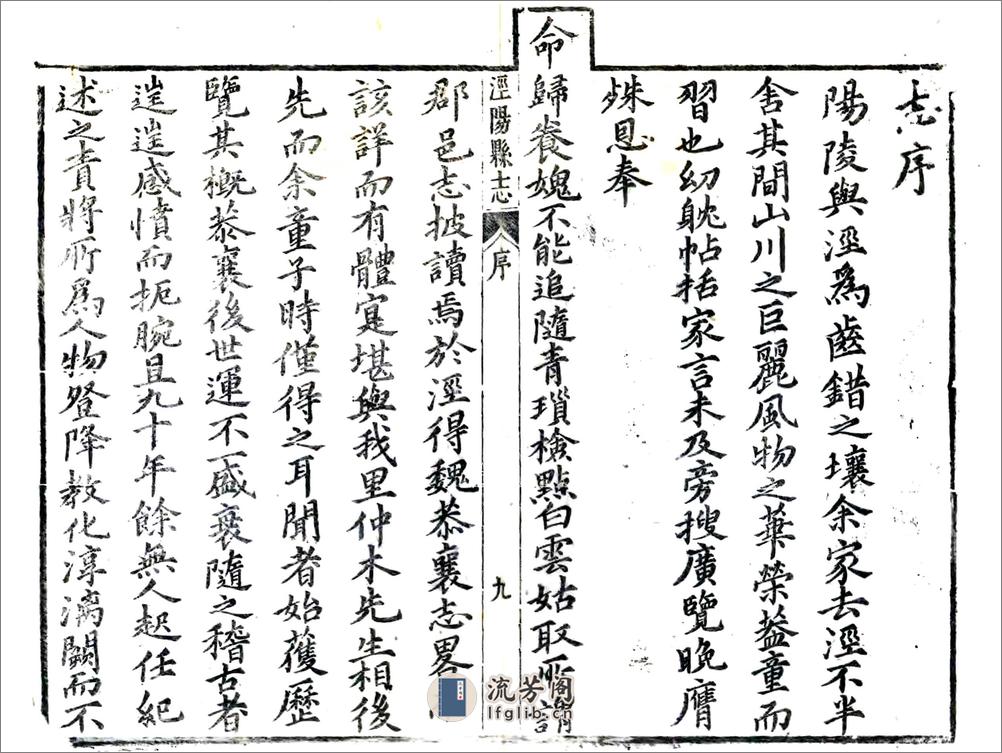 志序
陽陵與涇為齒錯之壤余家去涇不半
舍其間山川之巨麗風物之華榮葢童而
習也幼躭帖括家言未及旁搜廣覽晚膺
殊恩奉
命歸養媿不能追隨青瑣檢點白雲姑取所謂
涇陽縣志 序 九
郡邑志披讀焉於涇得魏恭襄志畧
該詳而有體寔堪與我里仲木先生相後
先而余童子時僅得之耳聞者始獲歷
覽其概恭襄後世運不一盛衰隨之稽古者
逬逬感憤而扼腕且九十年餘無人起任紀
述之責將所為人物登降教化淳漓闕而不
流芳阁
lfglib.cn